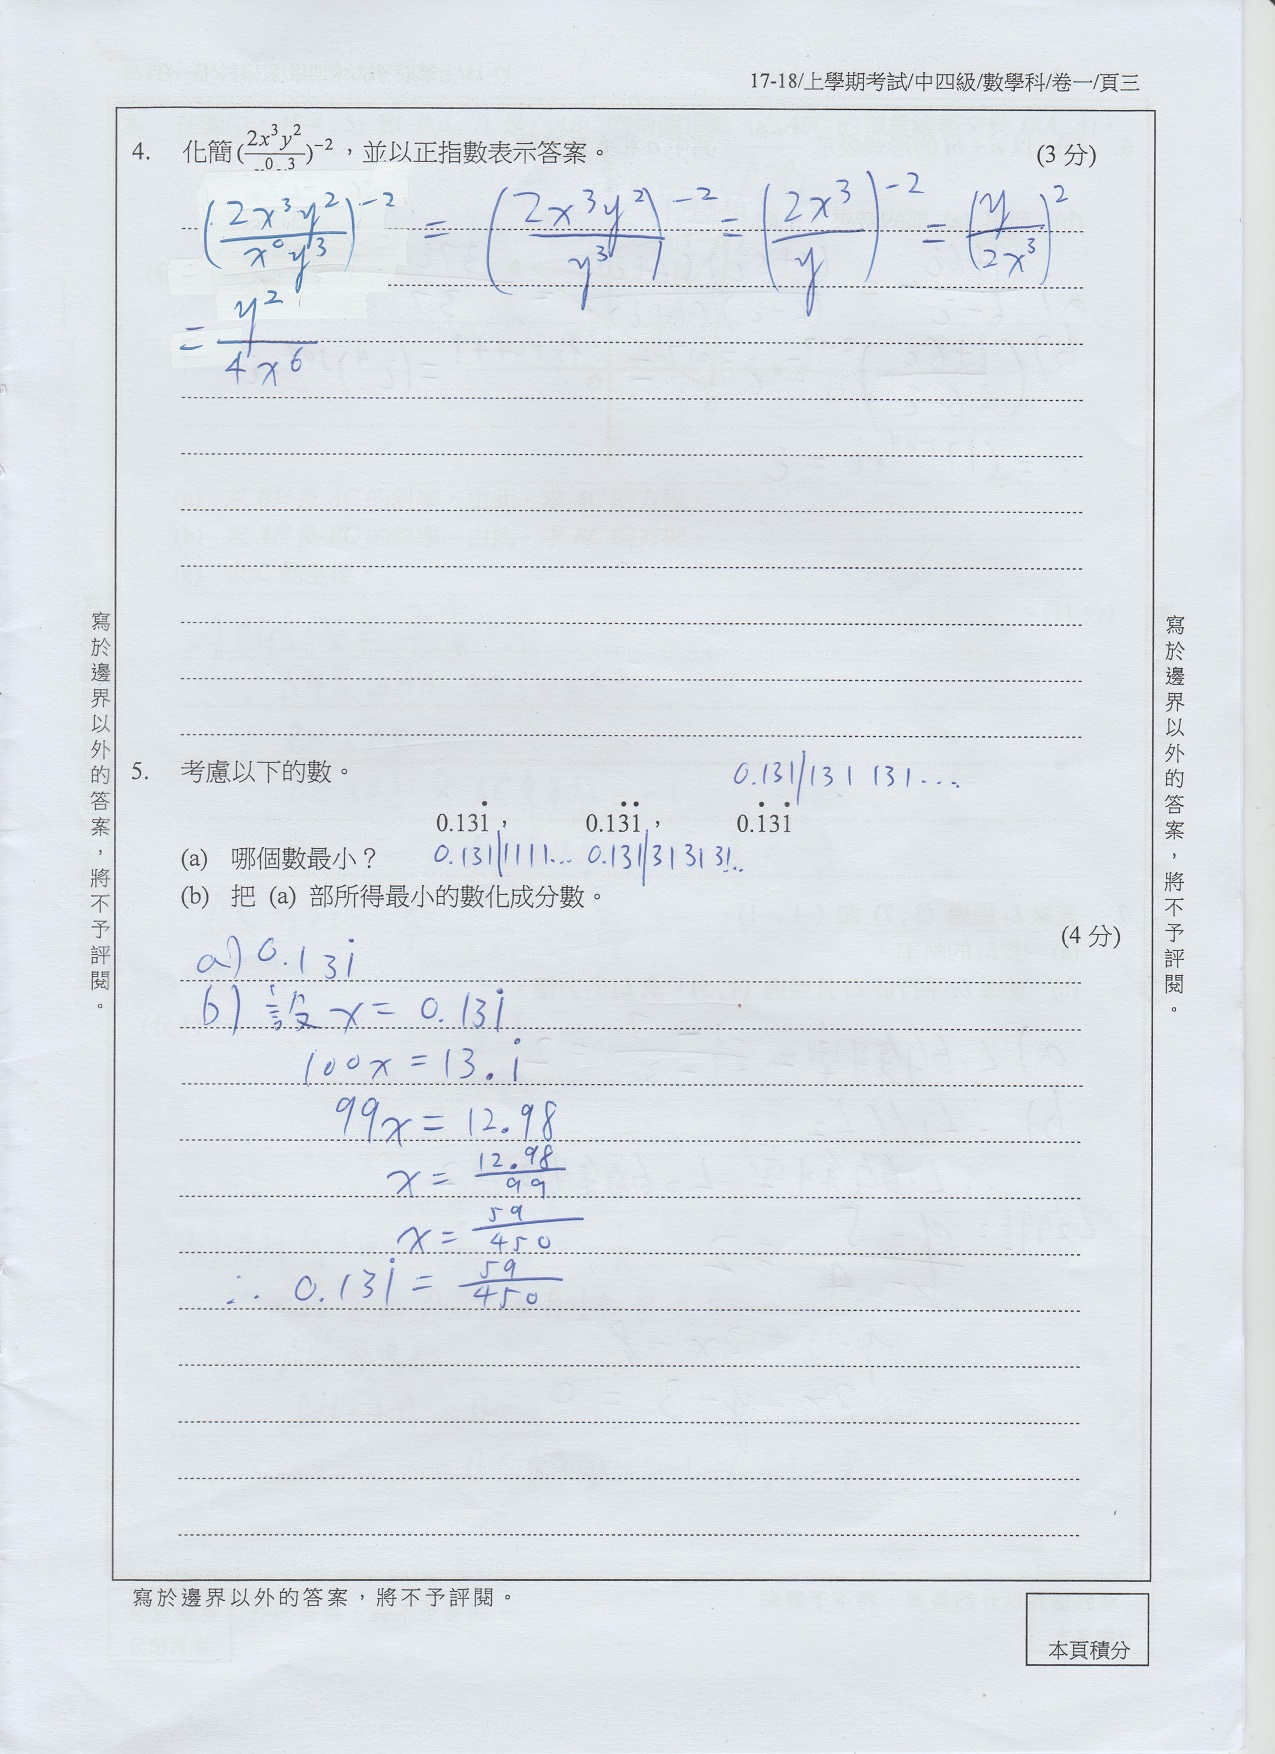 17-18/上學期考試/中四級/數學科/卷一/頁三
4. 化簡(\frac{2x^3y^2}{x^0y^3})^{-2}，並以正指數表示答案。 (3 分)
(\frac{2x^3y^2}{x^0y^3})^{-2} = (\frac{2x^3y^2}{y^3})^{-2} = (\frac{2x^3}{y})^{-2} = (\frac{y}{2x^3})^2
= \frac{y^2}{4x^6}
5. 考慮以下的數。 0.131|131 131...
0.131̇， 0.13̇1̇， 0.1̇31̇
(a) 哪個數最小？ 0.131|1111... 0.131|313131...
(b) 把 (a) 部所得最小的數化成分數。
(4 分)
a) 0.131̇
b) 設 x = 0.131̇
100x = 13.1̇
99x = 12.98
x = \frac{12.98}{99}
x = \frac{59}{450}
∴ 0.131̇ = \frac{59}{450}
寫於邊界以外的答案，將不予評閱。
寫於邊界以外的答案，將不予評閱。
寫於邊界以外的答案，將不予評閱。
本頁積分